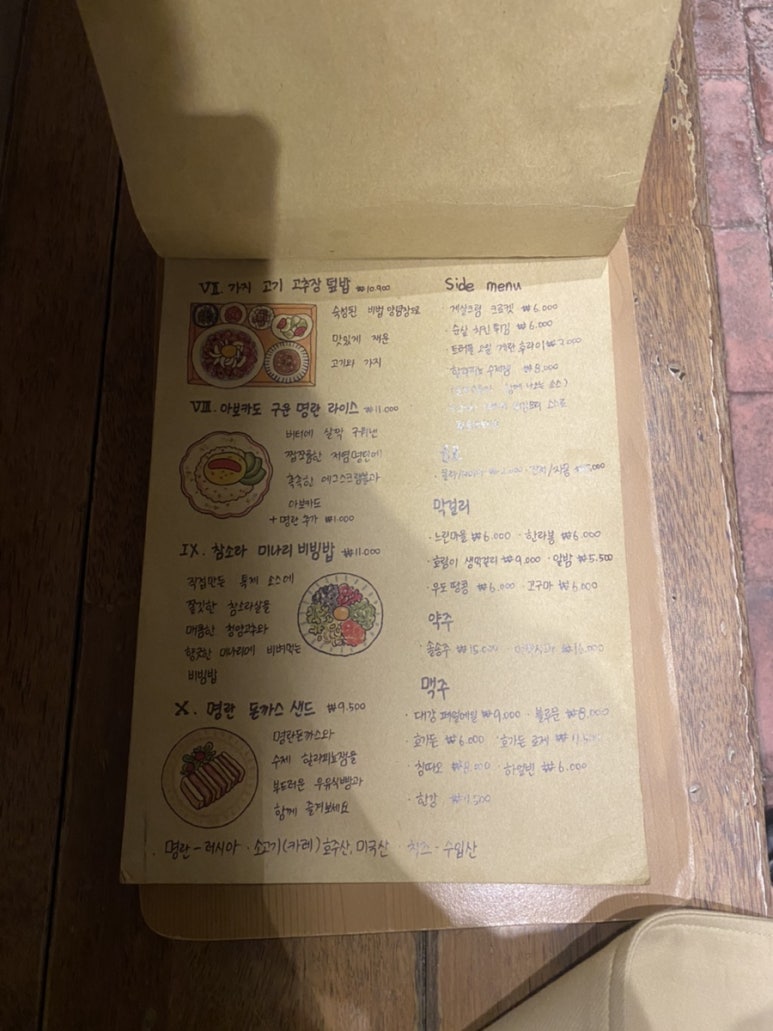 VII. 가지 고기 고추장 덮밥 ₩10.900
숙성된 비법 양념장으로
맛있게 재운
고기와 가지
VIII. 아보카도 구운 명란 라이스 ₩11.000
버터에 살짝 구워낸
짭쪼름한 저염명란에
촉촉한 에그스크램블과
아보카도
+ 명란 추가 ₩1.000
IX. 참소라 미나리 비빔밥 ₩11.000
직접만든 특제 소스에
쫄깃한 참소라살을
매콤한 청양고추와
향긋한 미나리에 비벼먹는
비빔밥
X. 명란 돈까스 샌드 ₩9.500
명란돈까스와
수제 할라피뇨잼을
부드러운 우유식빵과
함께 즐겨보세요
Side menu
게살크림 크로켓 ₩6.000
· 순살 치킨 튀김 ₩6.000
· 트러플 오일 계란 후라이 ₩2.000
₩8.000
함께 나오는 소스)
막걸리
· 느린마을 ₩6.000 · 한라봉 ₩6.000
· 호랑이 생막걸리 ₩9.000 · 알밤 ₩5.500
· 우도 땅콩 ₩6.000 고구마 ₩6.000
약주
· 솔송주 ₩15.000
맥주
· 대강 페일에일 ₩9.000 · 블루문 ₩8.000
· 호가든 ₩6.000 · 호가든 로제
· 칭따오 ₩8.000 · 하얼빈 ₩6.000
· 한강
· 명란 - 러시아 · 소고기(카레) 호주산, 미국산 · 치즈 - 수입산